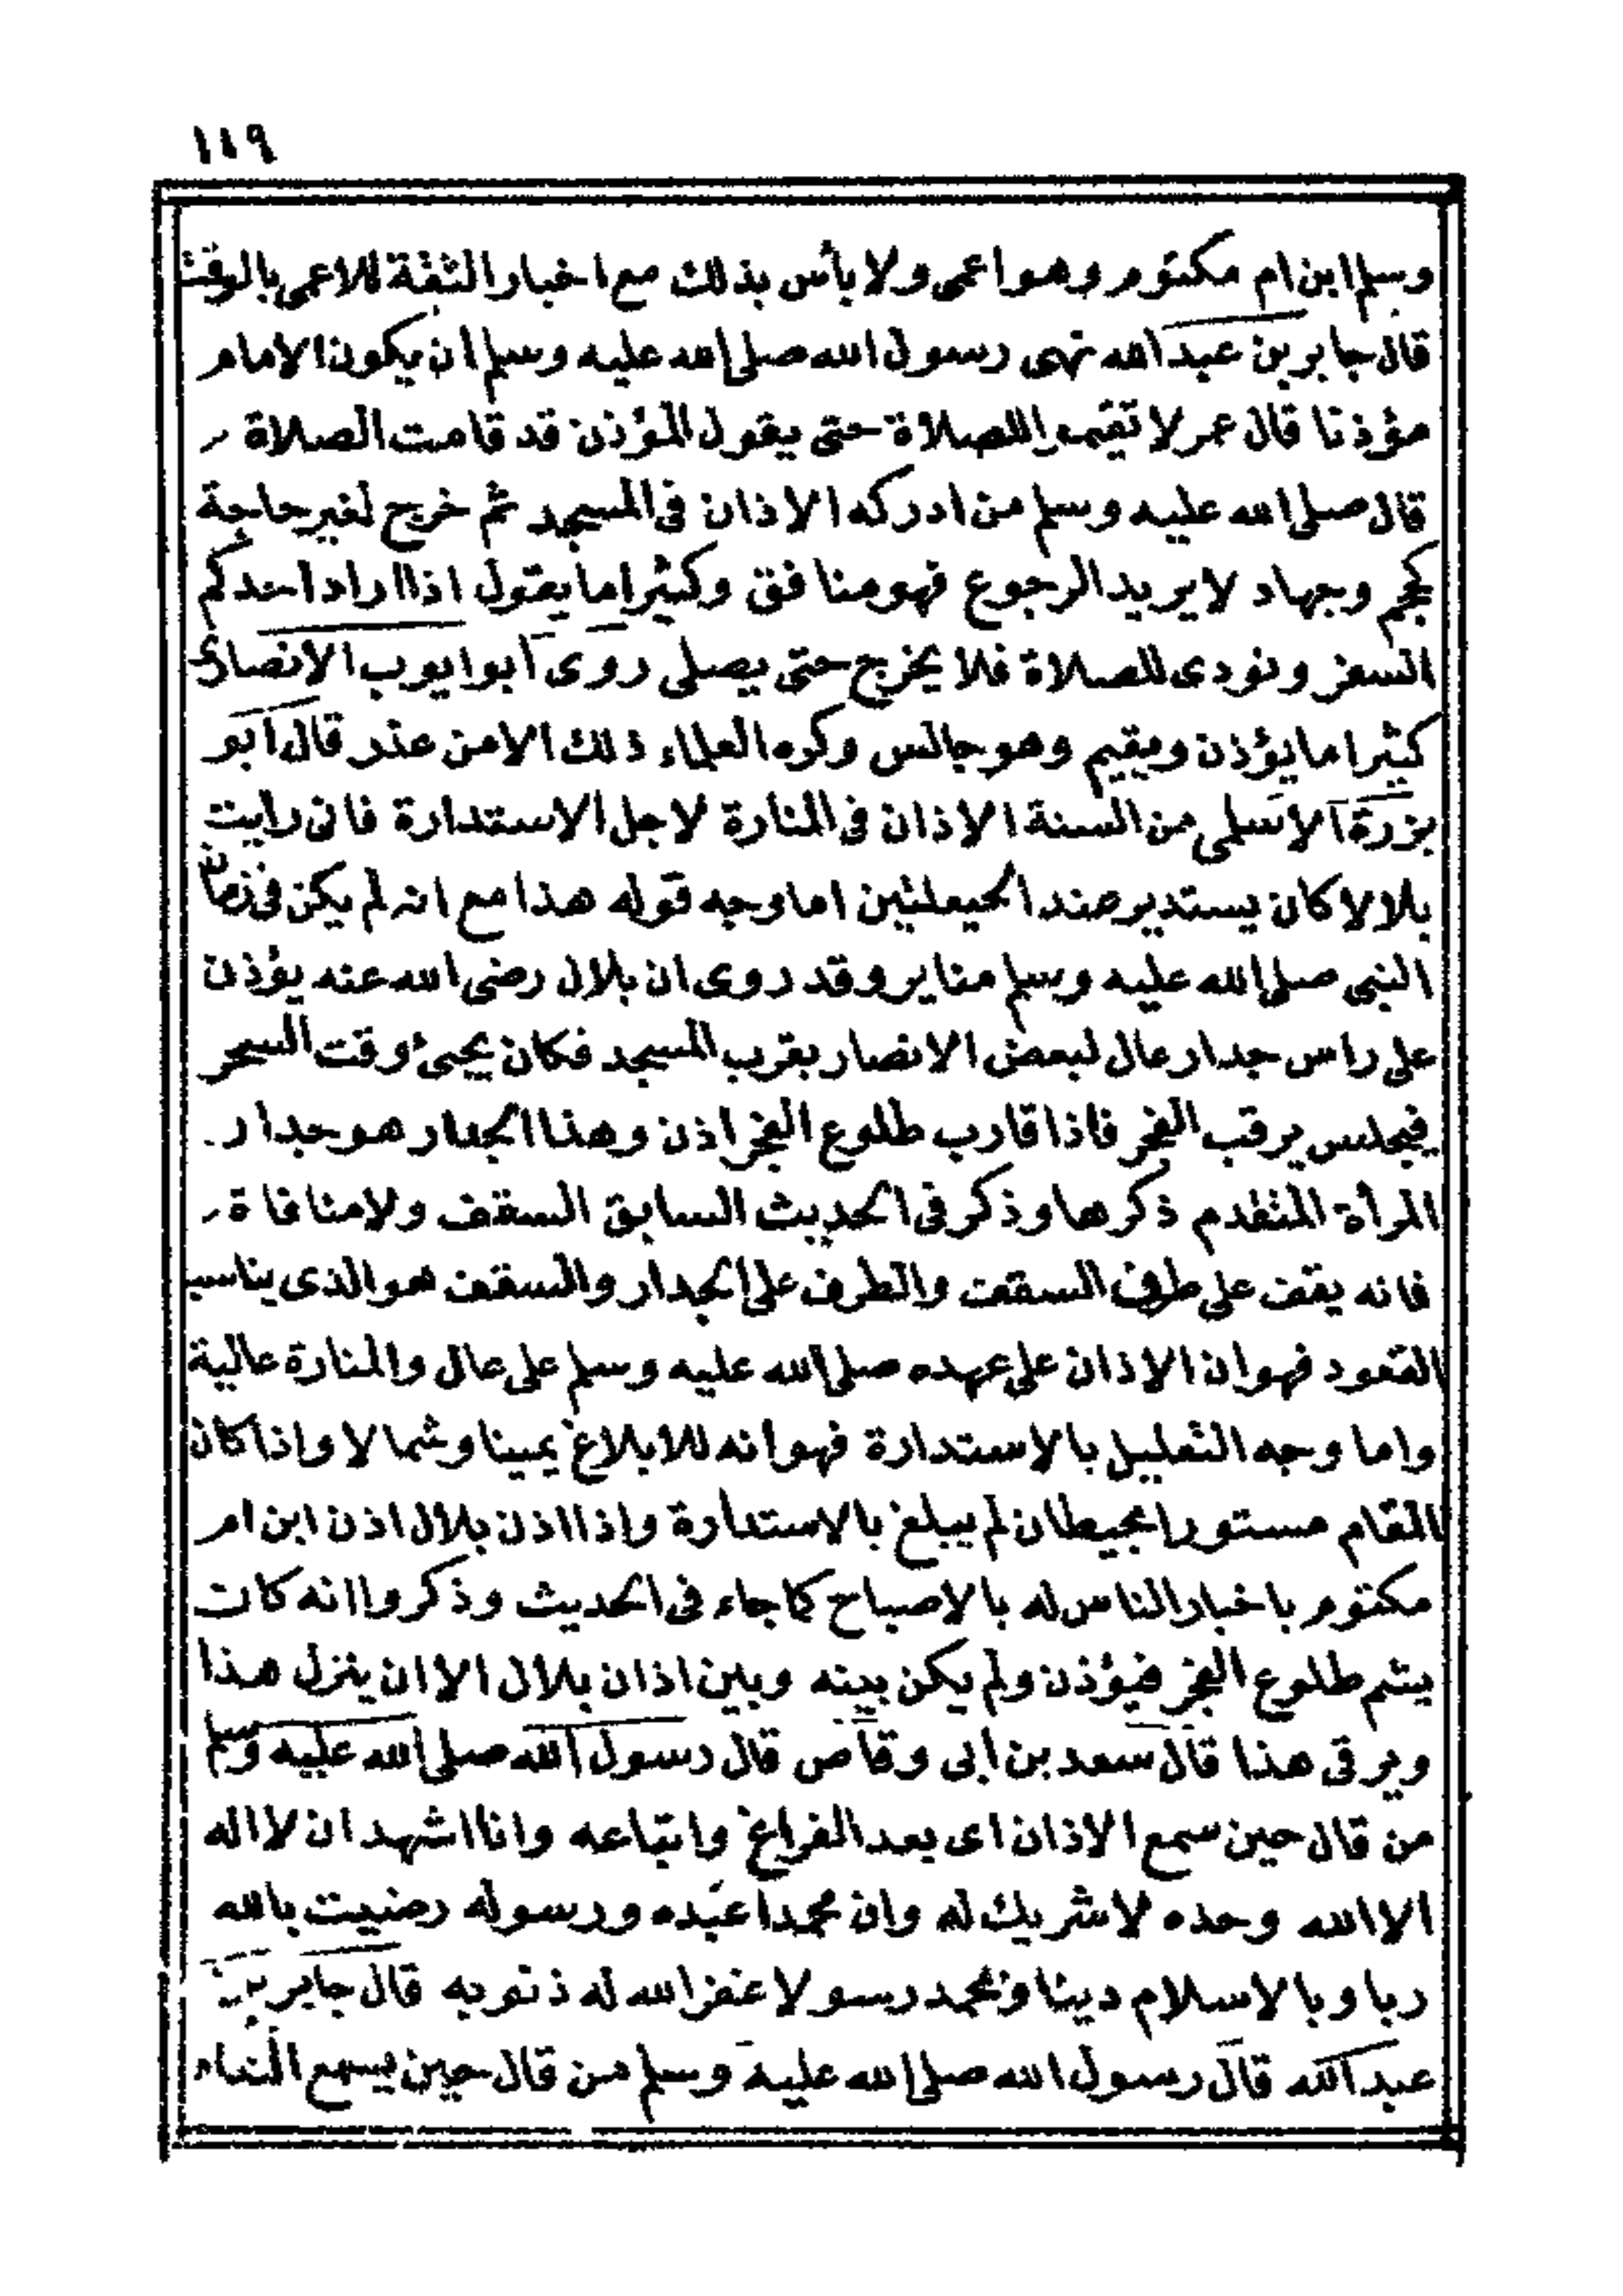 ١١٩
وسلم ابن ام مكتوم وهو اعمى ولا بأس بذلك مع اخبار الثقة للاعمى بالوقت
قال جابر بن عبد الله نهى رسول الله صلى الله عليه وسلم ان يكون الامام
مؤذنا قال عمر لا تقيموا للصلاة حتى يقول المؤذن قد قامت الصلاة
قال صلى الله عليه وسلم من ادركه الاذان فى المسجد ثم خرج لغير حاجة
كحج وجهاد لا يريد الرجوع فهو منافق وكثيرا ما يقول اذا اراد احدكم
السفر ونودى للصلاة فلا يخرج حتى يصلى روى ابو ايوب الانصارى
كثيرا ما يؤذن ويقيم وهو جالس وكره العلماء ذلك الا من عذر قال ابو
بزرة الاسلمى من السنة الاذان فى المنارة لاجل الاستدارة فانى رايت
بلالا كان يستدير عند الحيعلتين اما وجه قوله هذا مع انه لم يكن فى زمان
النبى صلى الله عليه وسلم مناير وقد روى ان بلال رضى الله عنه يؤذن
على راس جدار عال لبعض الانصار بقرب المسجد فكان يجىء وقت السحر
فيجلس يرقب الفجر فاذا قارب طلوع الفجر اذن وهذا الجدار هو جدار
المرأة المتقدم ذكرها وذكر فى الحديث السابق السقف ولا منافاة
فانه يقف على طرف السقف والطرف على الجدار والسقف هو الذى يناسب
القعود فهو ان الاذان على عهده صلى الله عليه وسلم على عال والمنارة عالية
واما وجه التعليل بالاستدارة فهو انه للابلاغ يمينا وشمالا واذا كان
المقام مستورا بحيطان لم يبلغ بالاستدارة واذا اذن بلال اذن ابن ام
مكتوم باخبار الناس له بالاصباح كما جاء فى الحديث وذكروا انه كان
يشم طلوع الفجر فيؤذن ولم يكن بينه وبين اذان بلال الا ان ينزل هذا
ويرقى هذا قال سعد بن ابى وقاص قال رسول الله صلى الله عليه وسلم
من قال حين سمع الاذان اى بعد الفراغ واتباعه وانا اشهد ان لا اله
الا الله وحده لا شريك له وان محمدا عبده ورسوله رضيت بالله
ربا وبالاسلام دينا وبمحمد رسولا غفر الله له ذنوبه قال جابر بن
عبد الله قال رسول الله صلى الله عليه وسلم من قال حين يسمع النداء